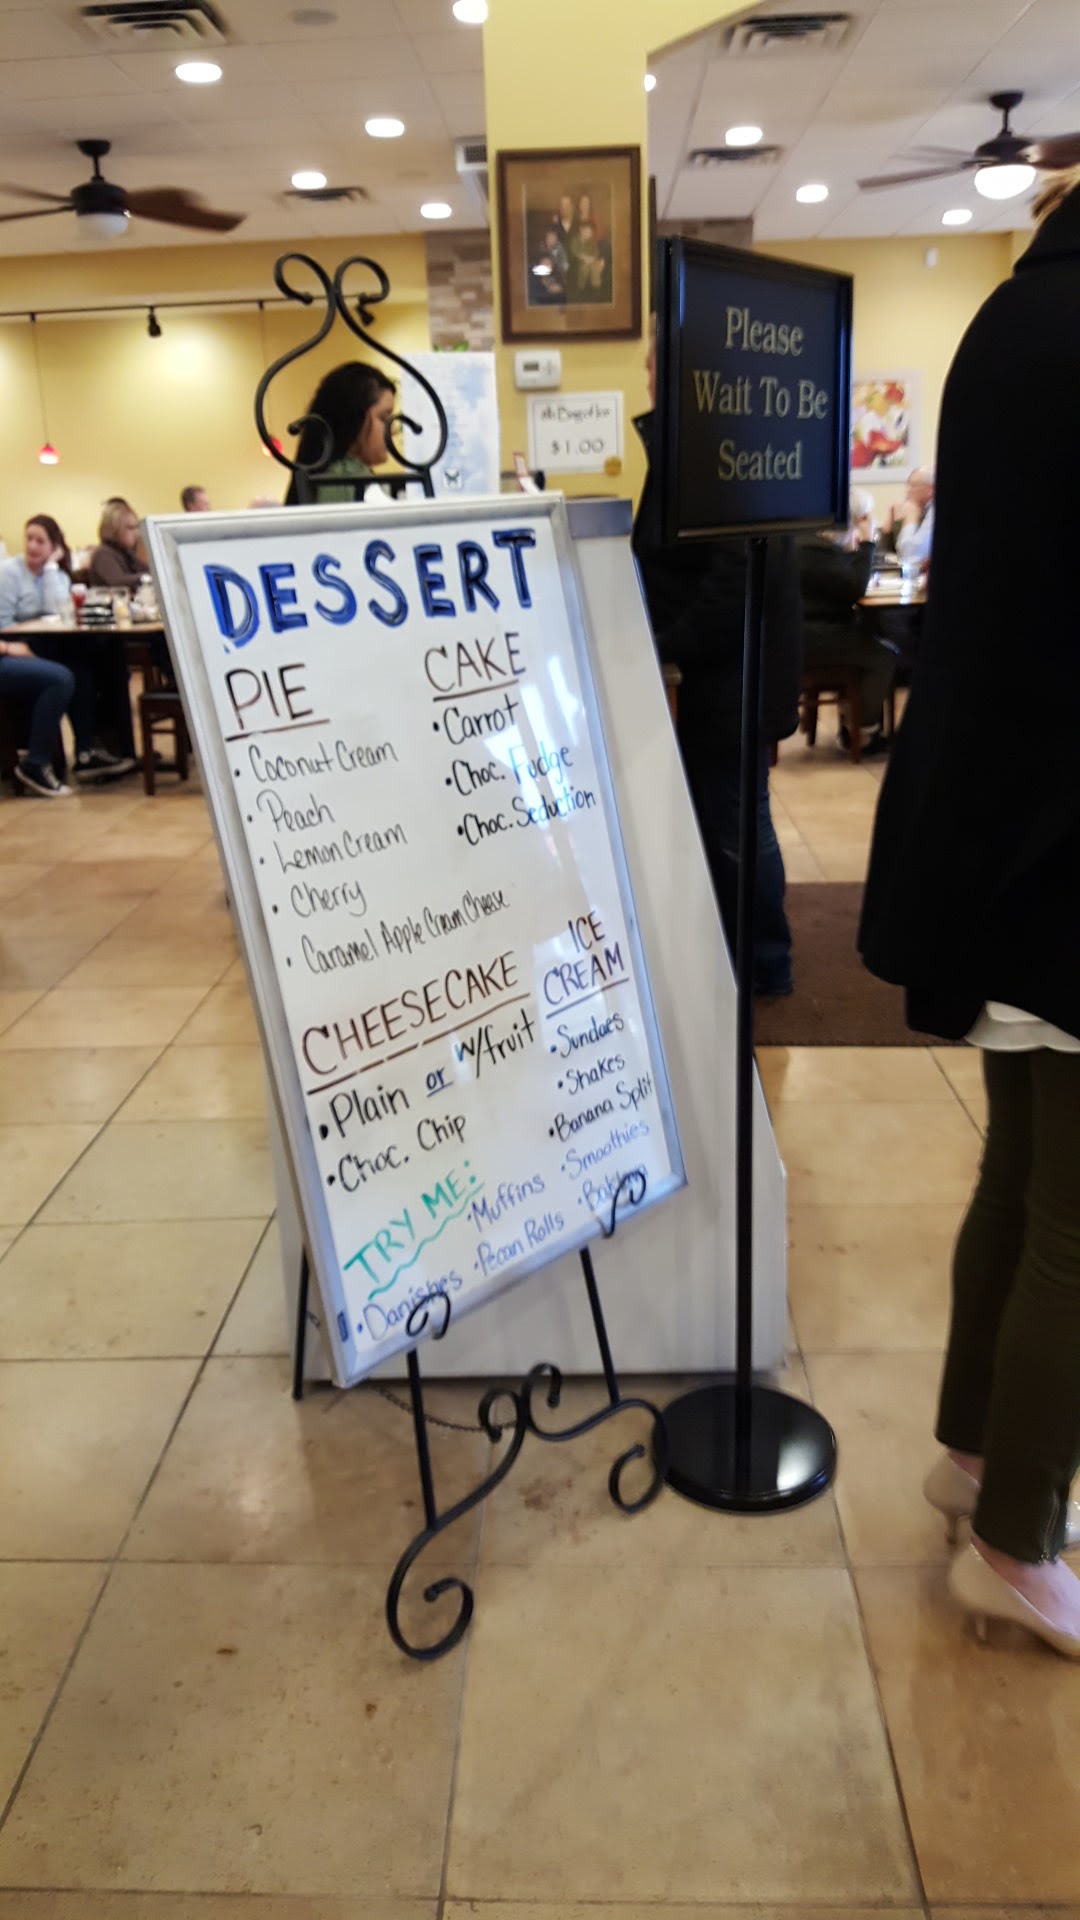 Please
Wait To Be
Seated
Bag of Ice
$1.00
DESSERT
PIE
• Coconut Cream
• Peach
• Lemon Cream
• Cherry
• Caramel Apple Cream Cheese
CAKE
• Carrot
• Choc. Fudge
• Choc. Seduction
CHEESECAKE
• Plain or w/fruit
• Choc. Chip
ICE
CREAM
• Sundaes
• Shakes
• Banana Split
• Smoothies
TRY ME:
• Muffins
• Baklava
• Danishes
• Pecan Rolls